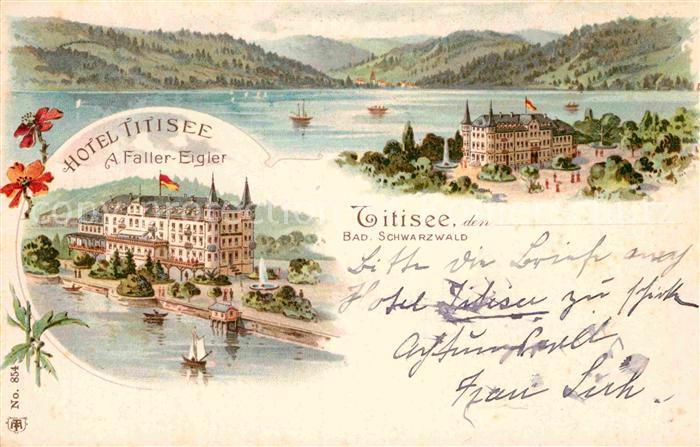 HOTEL TITISEE
A. Faller-Eigler
Titisee, den
BAD. SCHWARZWALD
Bitte die Briefe nach
Hotel Titisee zu schicken
Achtungsvoll
Frau
No. 854